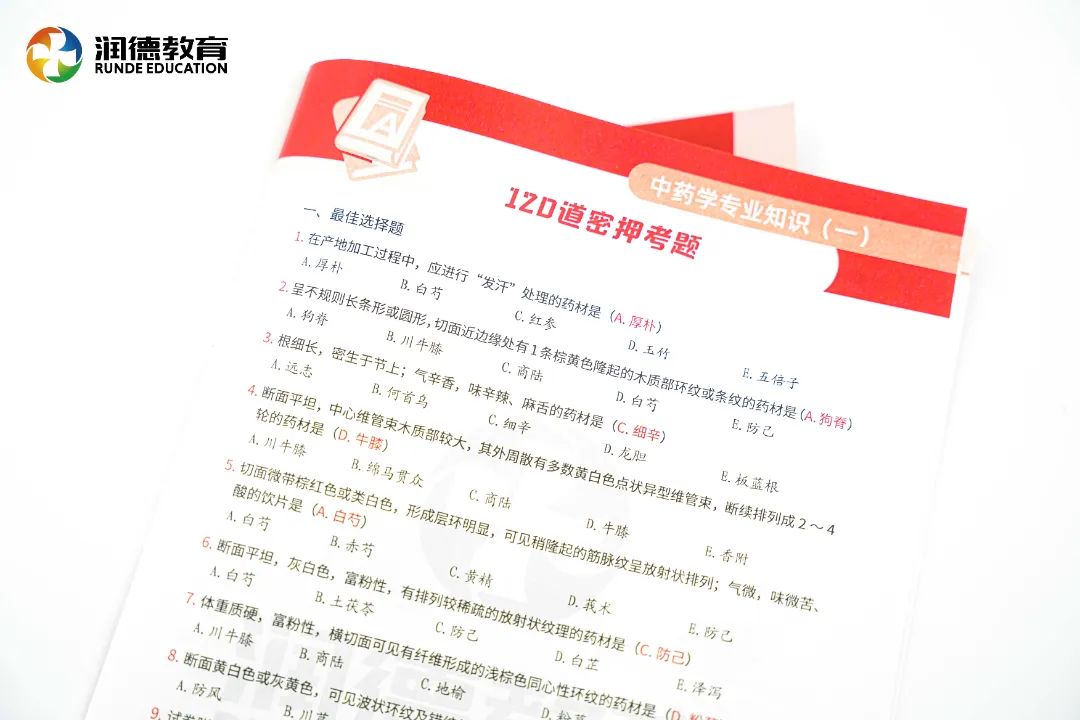 润德教育
RUNDE EDUCATION
中药学专业知识（一）
120道密押考题
一、最佳选择题
1. 在产地加工过程中，应进行“发汗”处理的药材是（A. 厚朴）
A. 厚朴 B. 白芍 C. 红参 D. 玉竹 E. 五倍子
2. 呈不规则长条形或圆形，切面近边缘处有1条棕黄色隆起的木质部环纹或条纹的药材是（A. 狗脊）
A. 狗脊 B. 川牛膝 C. 商陆 D. 白芍 E. 防己
3. 根细长，密生于节上；气辛香，味辛辣、麻舌的药材是（C. 细辛）
A. 远志 B. 何首乌 C. 细辛 D. 龙胆 E. 板蓝根
4. 断面平坦，中心维管束木质部较大，其外周散有多数黄白色点状异型维管束，断续排列成2～4
轮的药材是（D. 牛膝）
A. 川牛膝 B. 绵马贯众 C. 商陆 D. 牛膝 E. 香附
5. 切面微带棕红色或类白色，形成层环明显，可见稍隆起的筋脉纹呈放射状排列；气微，味微苦、
酸的饮片是（A. 白芍）
A. 白芍 B. 赤芍 C. 黄精 D. 莪术 E. 防己
6. 断面平坦，灰白色，富粉性，有排列较稀疏的放射状纹理的药材是（C. 防己）
A. 白芍 B. 土茯苓 C. 防己 D. 白芷 E. 泽泻
7. 体重质硬，富粉性，横切面可见有纤维形成的浅棕色同心性环纹的药材是（D.
A. 川牛膝 B. 商陆 C. 地榆 D. 粉葛
8. 断面黄白色或灰黄色，可见波状环纹及
A. 防风 B. 川芎
9.